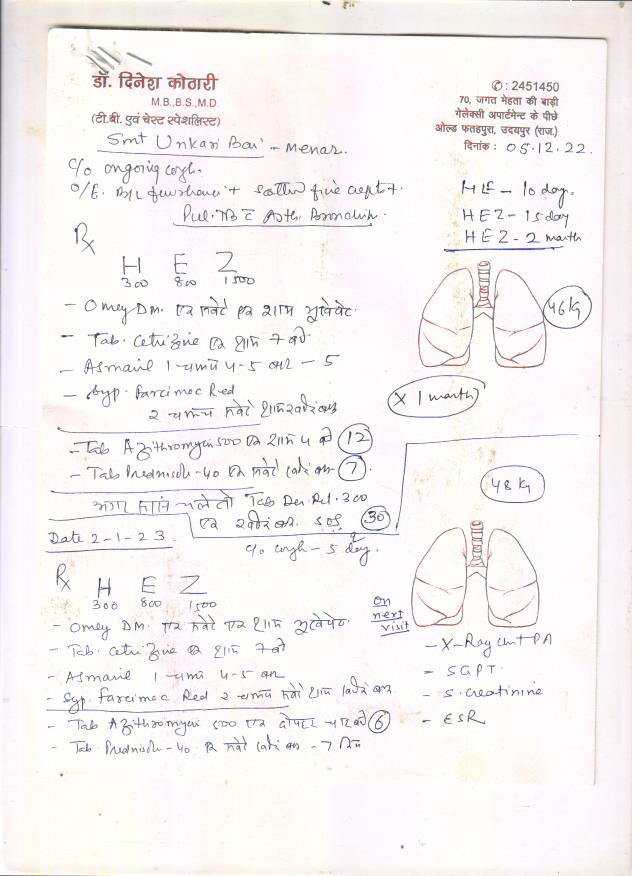 डॉ. दिनेश कोठारी
M.B.,B.S.,M.D.
(टी.बी. एवं चेस्ट स्पेशलिस्ट)
✆ : 2451450
70, जगत मेहता की बाड़ी
गेलेक्सी अपार्टमेन्ट के पीछे
ओल्ड फतहपुरा, उदयपुर (राज.)
दिनांक : 05.12.22.
Smt Unkari Bai - Menar.
C/o ongoing cough.
O/E. B/L
Pul. TBC Asth. Bronchitis.
HE - 10 day.
HEZ - 15 day
HEZ - 2 month
Rx
H E Z
300 800 1500
46 kg
- Omey DM. एक सवेरे एक शाम भूखे पेट.
- Tab. Cetrizine एक शाम 7 बजे
- Asmanil 1 - चम्मच 4-5 बार - 5
- Syp. Farcimec Red
2 चम्मच सवेरे शाम
X 1 month
- Tab Azithromycin 500 एक शाम 4 बजे 12
- Tab Prednisole - 40 एक सवेरे 7.
अगर सांस चले तो Tab Deri Ret. 300
एक SOS 30
48 kg
Date 2-1-23.
C/o cough - 5 day.
Rx
H E Z
300 800 1500
- Omey DM. एक सवेरे एक शाम भूखे पेट.
- Tab. Cetrizine एक शाम 7 बजे
- Asmanil 1 चम्मच 4-5 बार
- Syp. Farcimec Red 2 चम्मच सवेरे शाम
- Tab Azithromycin 500 एक दोपहर चार बजे 6
- Tab. Prednisole - 40. एक सवेरे - 7 दिन
on
next
visit
- X-Ray chest PA
- SGPT.
- S. Creatinine
- ESR